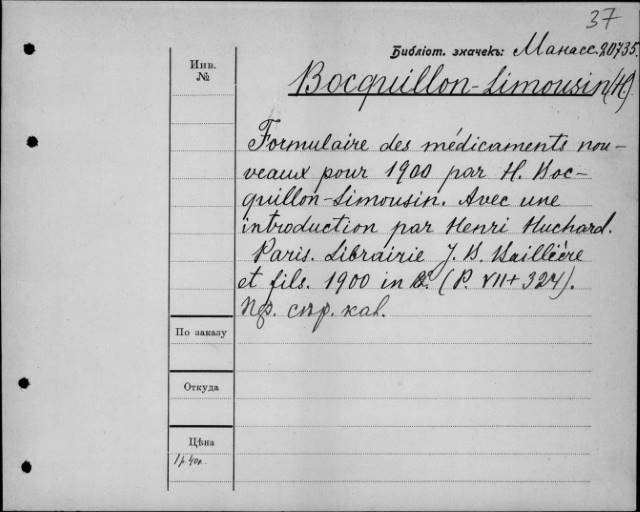 37
Библіот. значекъ: Манасс. 20735.
Инв.
№
Bocquillon-Limousin (H).
Formulaire des médicaments nou-
veaux pour 1900 par H. Boc-
quillon-Limousin. Avec une
introduction par Henri Huchard.
Paris. Librairie J. B. Baillière
et fils. 1900 in 12. (P. VII+324).
кав.
По заказу
Откуда
Цѣна
1 р. 40к.